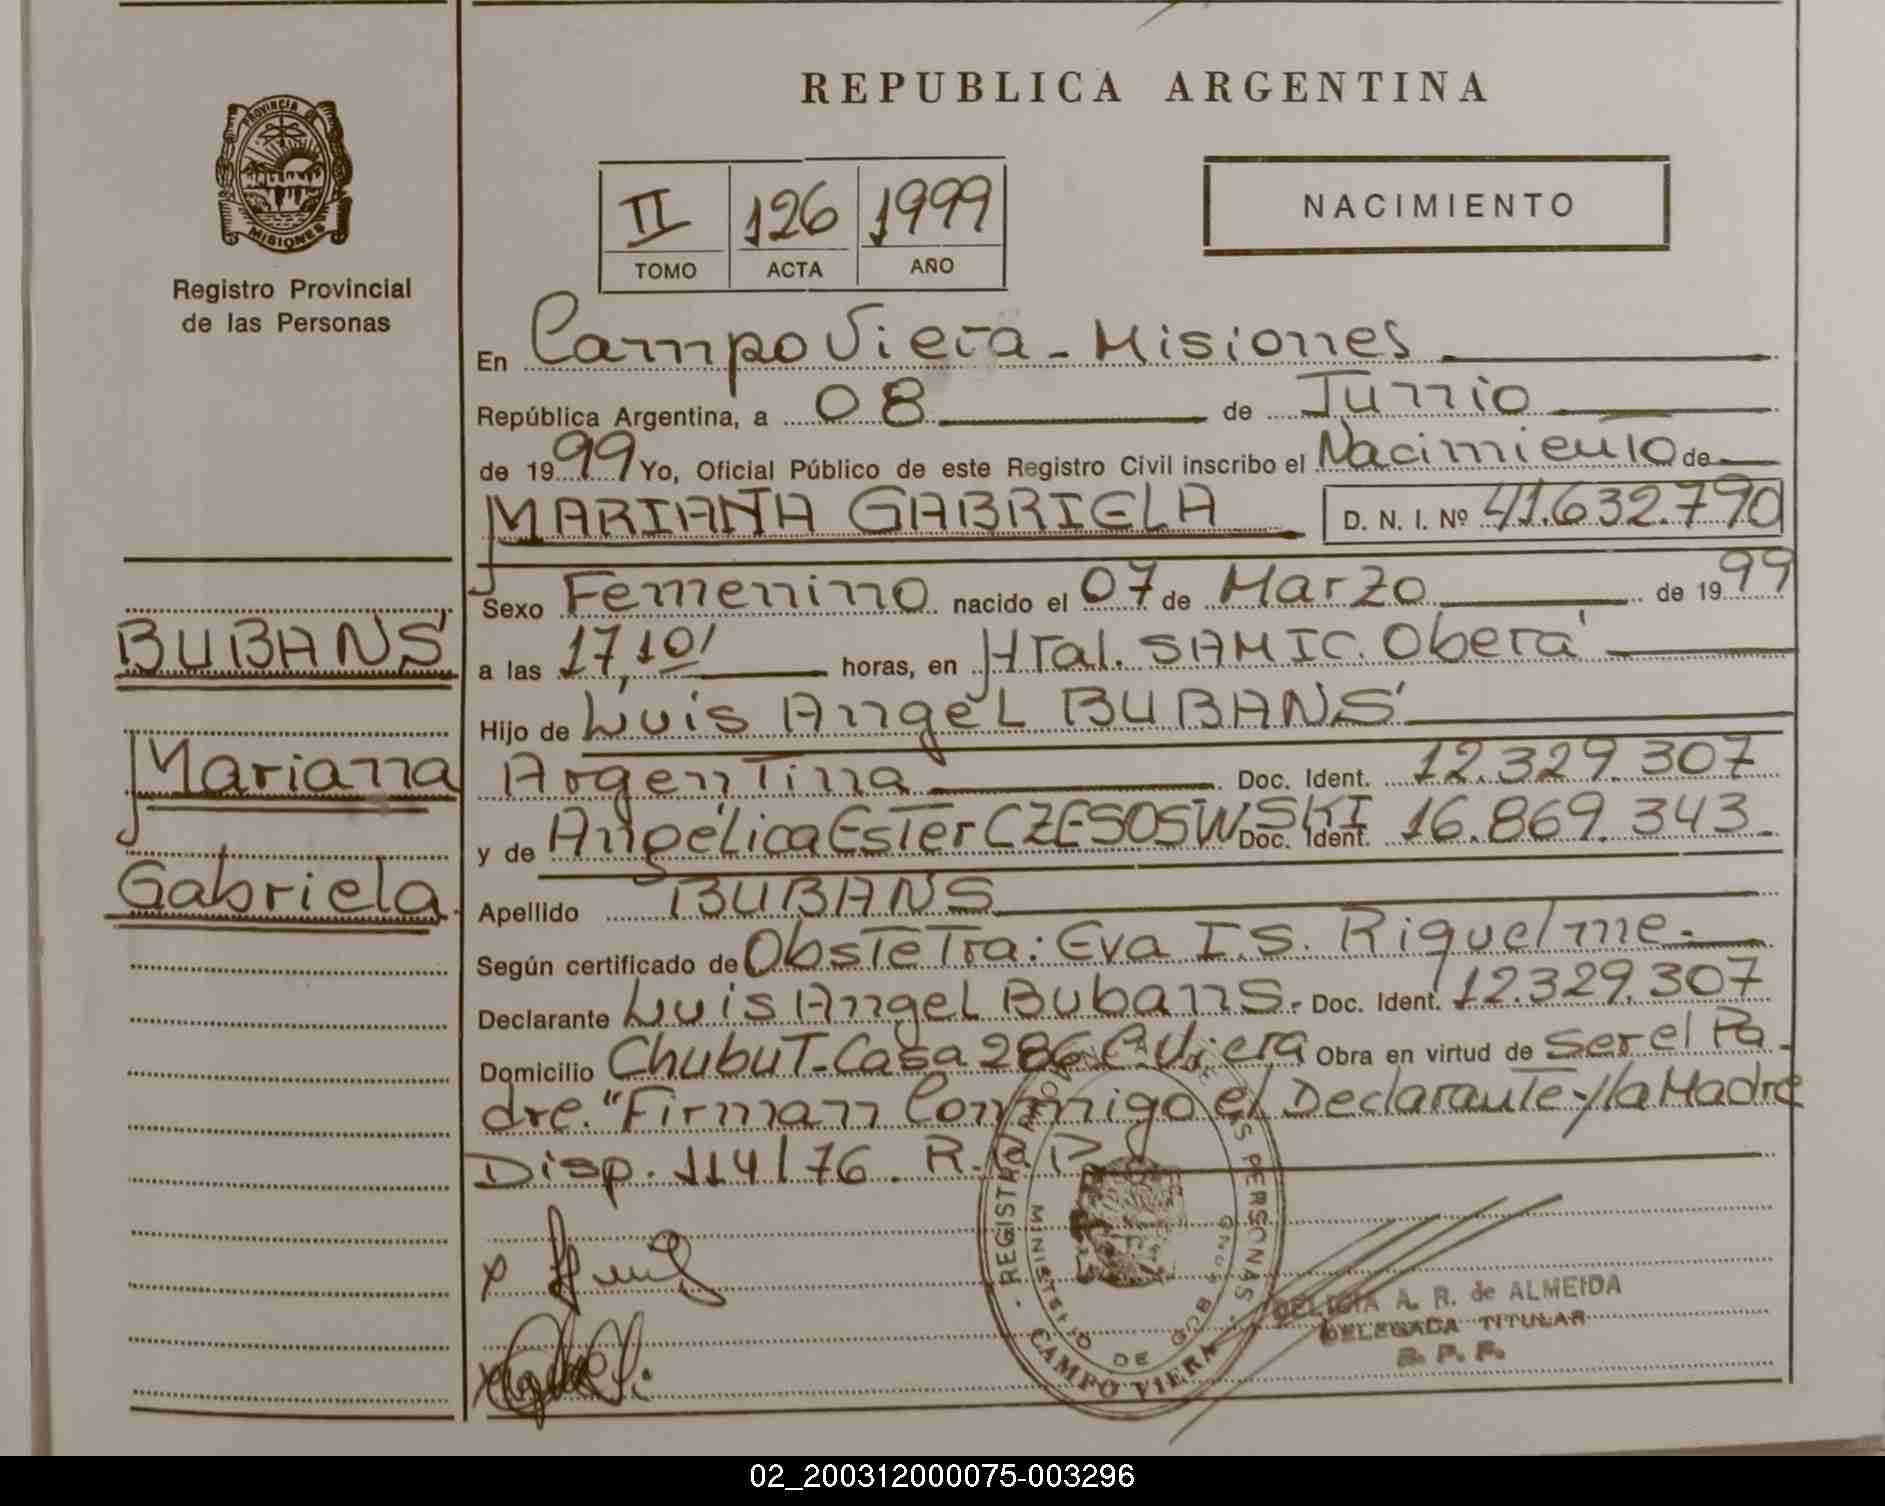 REPUBLICA ARGENTINA
PROVINCIA DE
MISIONES
Registro Provincial
de las Personas
II 126 1999
TOMO ACTA AÑO
NACIMIENTO
En Campo Viera - Misiones
República Argentina, a 08 de Junio
de 1999 Yo, Oficial Público de este Registro Civil inscribo el Nacimiento de
MARIANA GABRIELA D. N. I. Nº 41.632.790
Sexo Femenino nacido el 07 de Marzo de 1999
a las 17,10' horas, en Htal. SAMIC. Oberá
Hijo de Luis Angel BUBANS
Argentina Doc. Ident. 12.329.307
y de Angélica Ester CZESOSWSKI Doc. Ident. 16.869.343
Apellido BUBANS
Según certificado de Obstetra: Eva I.S. Riquelme.
Declarante Luis Angel Bubans. Doc. Ident. 12.329.307
Domicilio Chubut-Casa 286 C. Viera Obra en virtud de ser el Pa-
dre. "Firman Conmigo el Declarante y la Madre
Disp. 114/76. R.
BUBANS
Mariana
Gabriela
REGISTRO PERSONAS
MINISTERIO DE GOB
CAMPO VIERA
DELICIA A. R. de ALMEIDA
DELEGADA TITULAR
R. P. P.
02_200312000075-003296